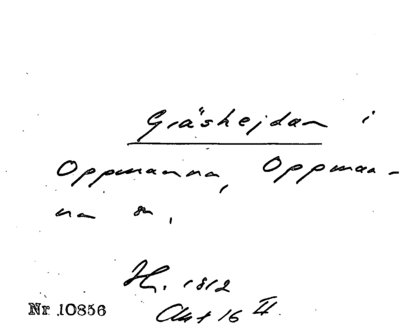 Gräshejdan i
Oppmanna, Oppman-
na sn.
Hr. 1812
Akt 16 II
Nr 10856